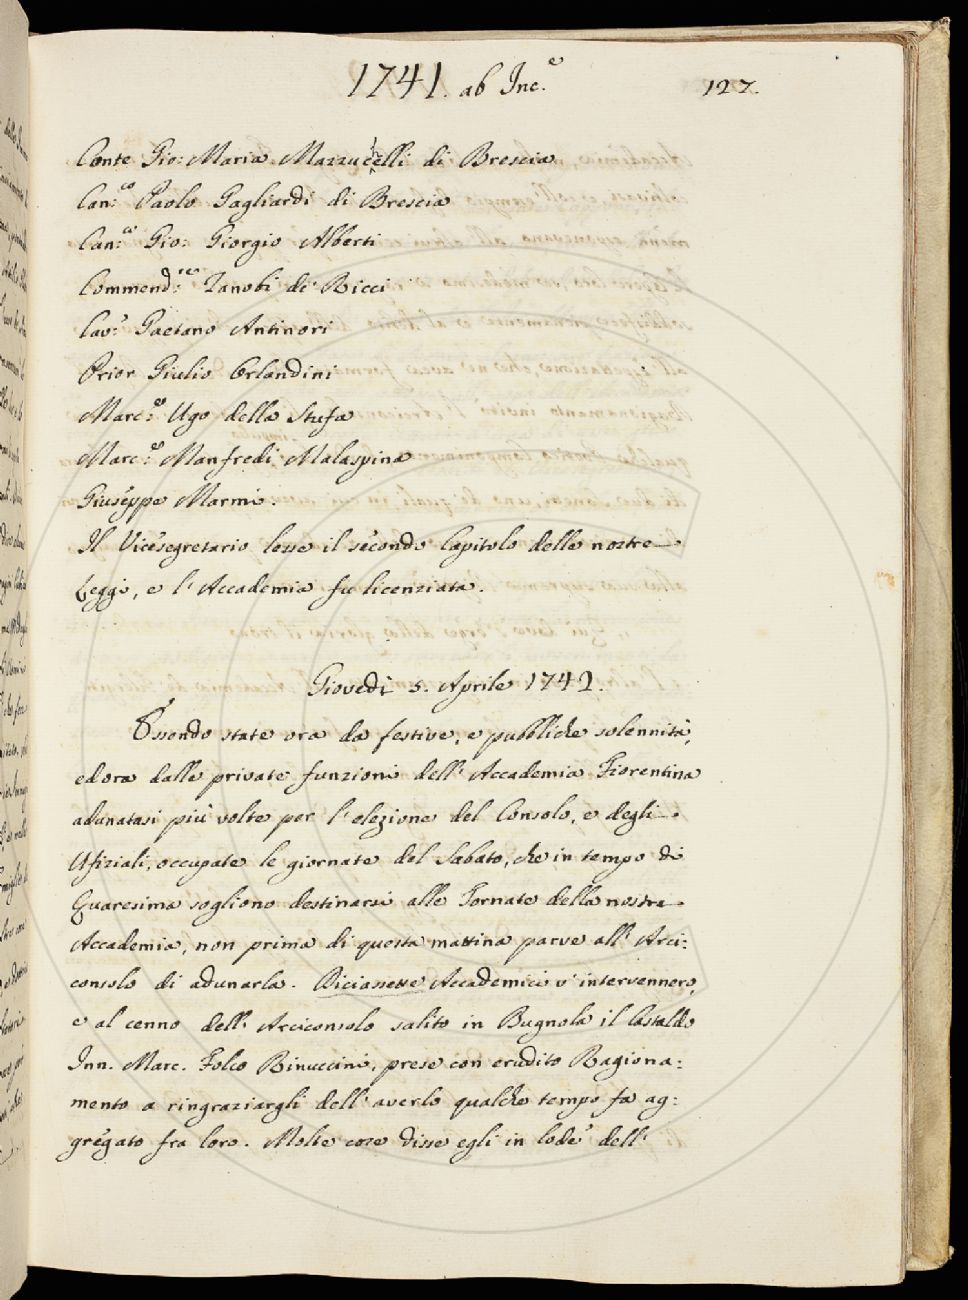 1741. ab Inc.e
127.
Conte Gio: Maria Mazzucelli di Brescia
Can:co Paolo Gagliardi di Brescia
Can:co Gio: Giorgio Alberti
Commend:re Zanobi de' Ricci
Cav:e Gaetano Antinori
Prior Giulio Orlandini
Marc:e Ugo della Stufa
Marc:e Manfredi Malaspina
Giuseppe Marmi.
Il Vicesegretario lesse il secondo Capitolo delle nostre
Leggi, e l'Accademia fu licenziata.
Giovedì 5. Aprile 1742.
Essendo state ora da festive, e pubbliche solennità,
ed ora dalle private funzioni dell'Accademia Fiorentina
adunatasi più volte per l'elezione del Consolo, e degli
Ufiziali, occupate le giornate del Sabato, che in tempo di
Quaresima sogliono destinarsi alle Tornate della nostra
Accademia, non prima di questa mattina parve all'Arci:
consolo di adunarla. Diciassette Accademici v'intervennero,
e al cenno dell'Arciconsolo salito in Bugnola il Castaldo
Inn. Marc. Folco Rinuccini, prese con erudito Ragiona:
mento a ringraziargli dell'averlo qualche tempo fa ag:
gregato fra loro. Molte cose disse egli in lode dell'